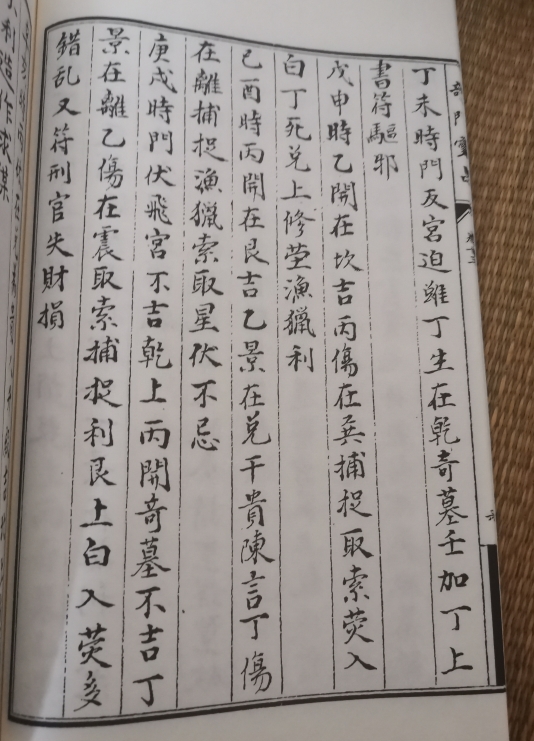 奇門寶占
卷三
丁未時門反宮迫雖丁生在乾奇墓壬加丁上
書符驅邪
戊申時乙開在坎吉丙傷在巽捕捉取索熒入
白丁死兌上修塋漁獵利
己酉時丙開在艮吉乙景在兌干貴陳言丁傷
在離捕捉漁獵索取星伏不忌
庚戌時門伏飛宮不吉乾上丙開奇墓不吉丁
景在離乙傷在震取索捕捉利艮上白入熒多
錯乱又符刑官失財損